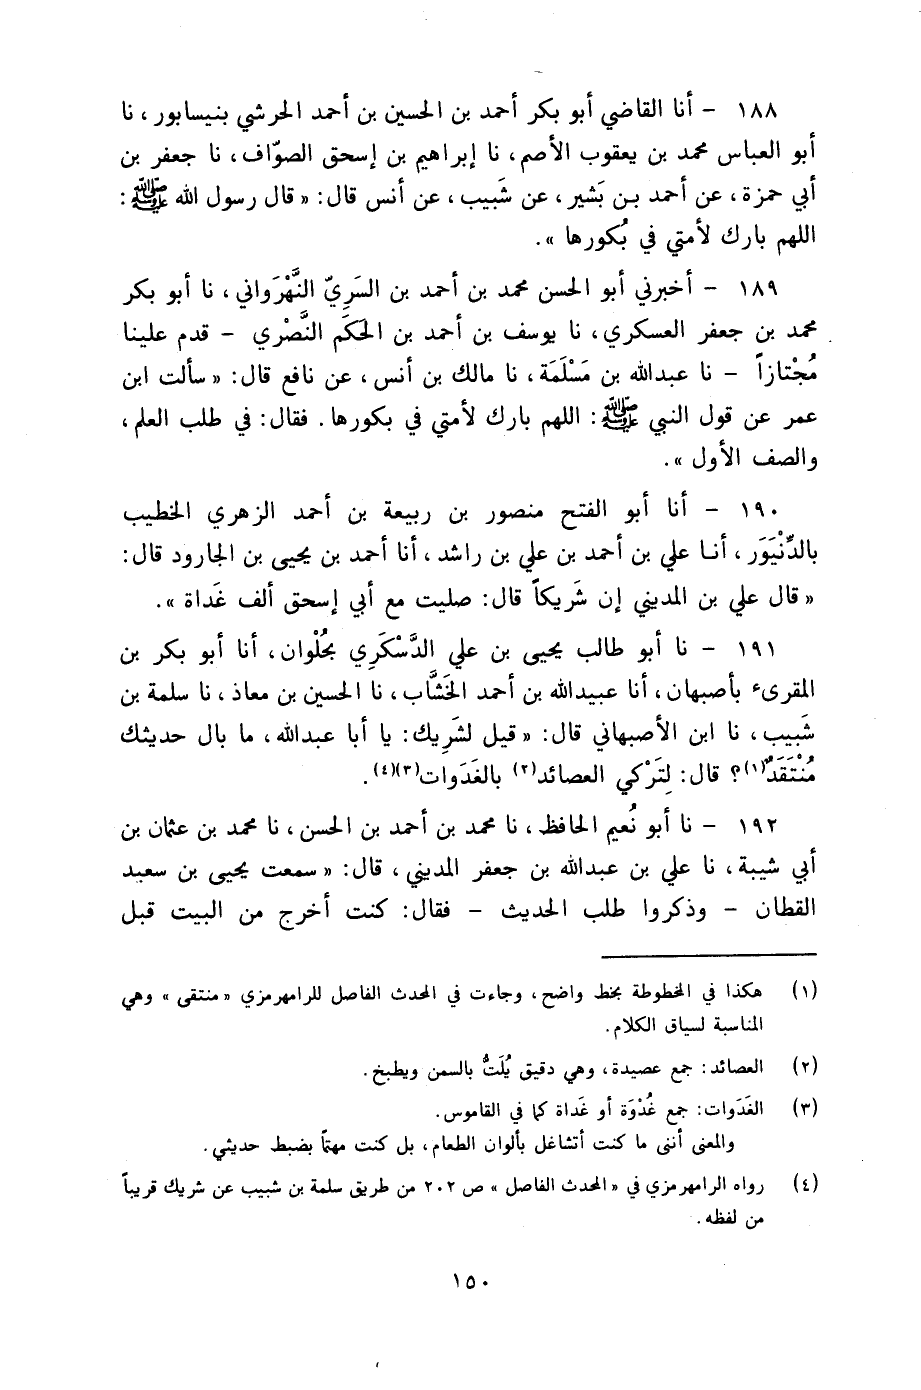 ١٨٨ - أنا القاضي أبو بكر أحمد بن الحسين بن أحمد الحرشي بنيسابور، نا
أبو العباس محمد بن يعقوب الأصم، نا إبراهيم بن إسحق الصوّاف، نا جعفر بن
أبي حمزة، عن أحمد بن بَشير، عن شَبيب، عن أنس قال: « قال رسول الله ﷺ :
اللهم بارك لأمتي في بُكورها ».
١٨٩ - أخبرني أبو الحسن محمد بن أحمد بن السَرِيّ النَّهْرَواني، نا أبو بكر
محمد بن جعفر العسكري، نا يوسف بن أحمد بن الحَكَم النَّصْري - قدم علينا
مُجْتازاً - نا عبدالله بن مَسْلَمَة، نا مالك بن أنس، عن نافع قال: « سألت ابن
عمر عن قول النبي ﷺ : اللهم بارك لأمتي في بكورها. فقال: في طلب العلم،
والصف الأول ».
١٩٠ - أنا أبو الفتح منصور بن ربيعة بن أحمد الزهري الخطيب
بالدِّنْيَوَر، أنا علي بن أحمد بن علي بن راشد، أنا أحمد بن يحيى بن الجارود قال:
« قال علي بن المديني إن شَريكاً قال: صليت مع أبي إسحق ألف غَداة ».
١٩١ - نا أبو طالب يحيى بن علي الدَّسْكَرِي بحُلْوان، أنا أبو بكر بن
المقرىء بأصبهان، أنا عبيدالله بن أحمد الخَشَّاب، نا الحسين بن معاذ، نا سلمة بن
شَبيب، نا ابن الأصبهاني قال: « قيل لشَرِيك: يا أبا عبدالله، ما بال حديثك
مُنْتَقَدٌ(١)؟ قال: لتَرْكي العصائد(٢) بالغَدَوات(٣)(٤).
١٩٢ - نا أبو نُعيم الحافظ، نا محمد بن أحمد بن الحسن، نا محمد بن عثمان بن
أبي شيبة، نا علي بن عبدالله بن جعفر المديني، قال: « سمعت يحيى بن سعيد
القطان - وذكروا طلب الحديث - فقال: كنت أخرج من البيت قبل
(١) هكذا في المخطوطة بخط واضح، وجاءت في المحدث الفاصل للرامهرمزي « منتقى » وهي
المناسبة لسياق الكلام.
(٢) العصائد: جمع عصيدة، وهي دقيق يُلَتُّ بالسمن ويطبخ.
(٣) الغَدَوات: جمع غُدْوَة أو غَداة كما في القاموس.
والمعنى أنني ما كنت أتشاغل بألوان الطعام، بل كنت مهتماً بضبط حديثي.
(٤) رواه الرامهرمزي في « المحدث الفاصل » ص ٢٠٢ من طريق سلمة بن شبيب عن شريك قريباً
من لفظه.
١٥٠